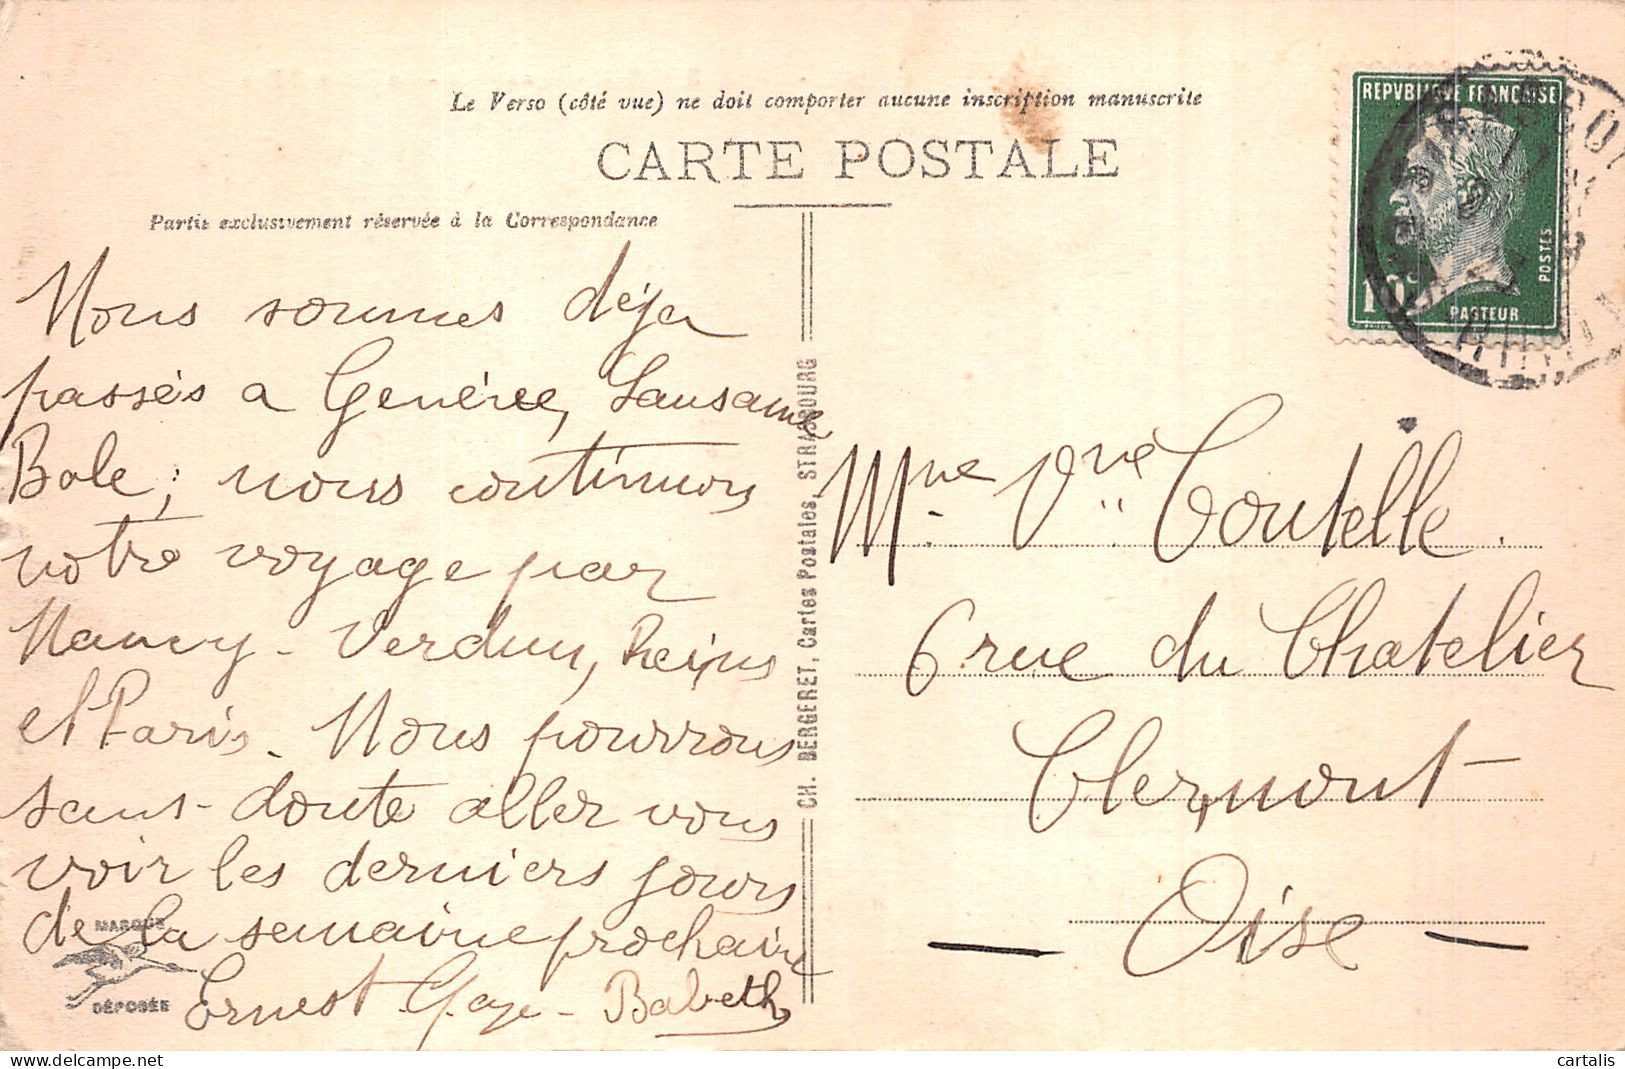 Le Verso (côté vue) ne doit comporter aucune inscription manuscrite
CARTE POSTALE
Partie exclusivement réservée à la Correspondance
REPVBLIQVE FRANÇAISE
10c
POSTES
PASTEUR
Nous sommes déja
passés a Genéve, Lausanne
Bale; nous continuons
notre voyage par
Nancy - Verdun, Reims
et Paris. Nous pourrons
sans-doute aller vous
voir les derniers jours
de la semaine prochaine
Ernest Gaye - Babeth
MARQUE
DÉPOSÉE
CH. BERGERET, Cartes Postales, STRASBOURG
Mme Vve Coutelle.
6 rue du Chatelier
Clermont -
- Oise -
cartalis